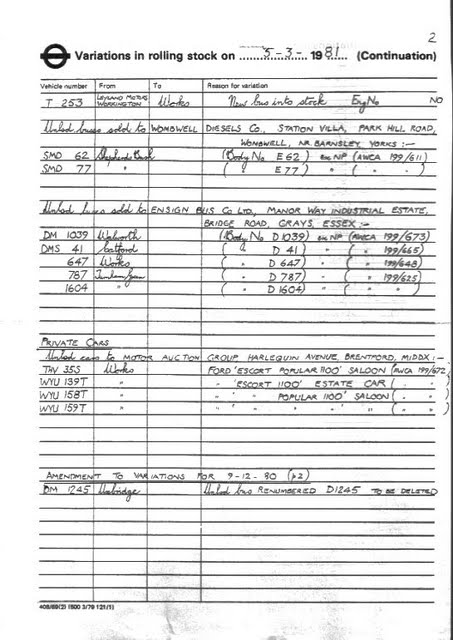 2
Variations in rolling stock on 5-3- 1981 (Continuation)
Vehicle number From To Reason for variation
T 253 LEYLAND MOTORS WORKINGTON Works New bus into stock Eng No NO
Unlicd buses sold to WOMBWELL DIESELS CO., STATION VILLA, PARK HILL ROAD,
WOMBWELL, NR. BARNSLEY, YORKS :-
SMD 62 Shepherds Bush (Body No E 62) ex NP (AWCA 199/611)
SMD 77 " ( " E 77 ) " ( " " )
Unlicd buses sold to ENSIGN BUS CO LTD., MANOR WAY INDUSTRIAL ESTATE,
BRIDGE ROAD, GRAYS, ESSEX :-
DM 1039 Walworth (Body No D1039) ex NP (AWCA 199/673)
DMS 41 Catford ( " D 41 ) " ( " 199/665)
647 Works ( " D 647 ) " ( " 199/648)
787 Turnham Green ( " D 787 ) " ( " 199/625)
1604 " ( " D 1604 ) " ( " " )
PRIVATE CARS
Unlicd cars to MOTOR AUCTION GROUP, HARLEQUIN AVENUE, BRENTFORD, MIDDX :-
THV 35S Works FORD 'ESCORT POPULAR 1100' SALOON (AWCA 199/672)
WYU 139T " " 'ESCORT 1100' ESTATE CAR ( " " )
WYU 158T " " " POPULAR 1100' SALOON ( " " )
WYU 159T " " " " " " ( " " )
AMENDMENT TO VARIATIONS FOR 9-12-80 (p2)
DM 1245 Uxbridge Unlicd bus RENUMBERED D1245 TO BE DELETED
406/69(2) 1500 3/79 121/1)